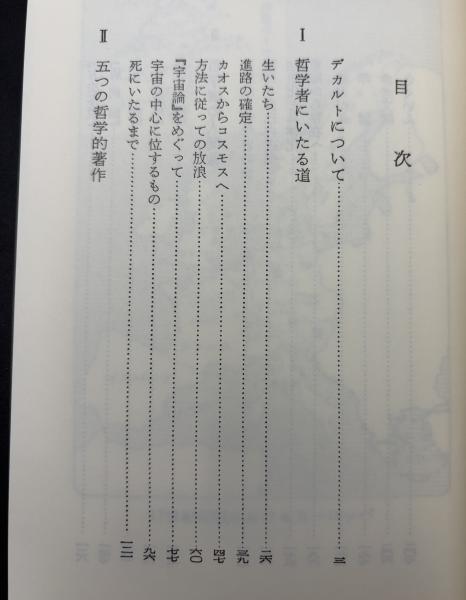 目次
デカルトについて……三
Ⅰ 哲学者にいたる道
生いたち……二六
進路の確定……三九
カオスからコスモスへ……四七
方法に従っての放浪……六〇
『宇宙論』をめぐって……七七
宇宙の中心に位するもの……九六
死にいたるまで……一一一
Ⅱ 五つの哲学的著作